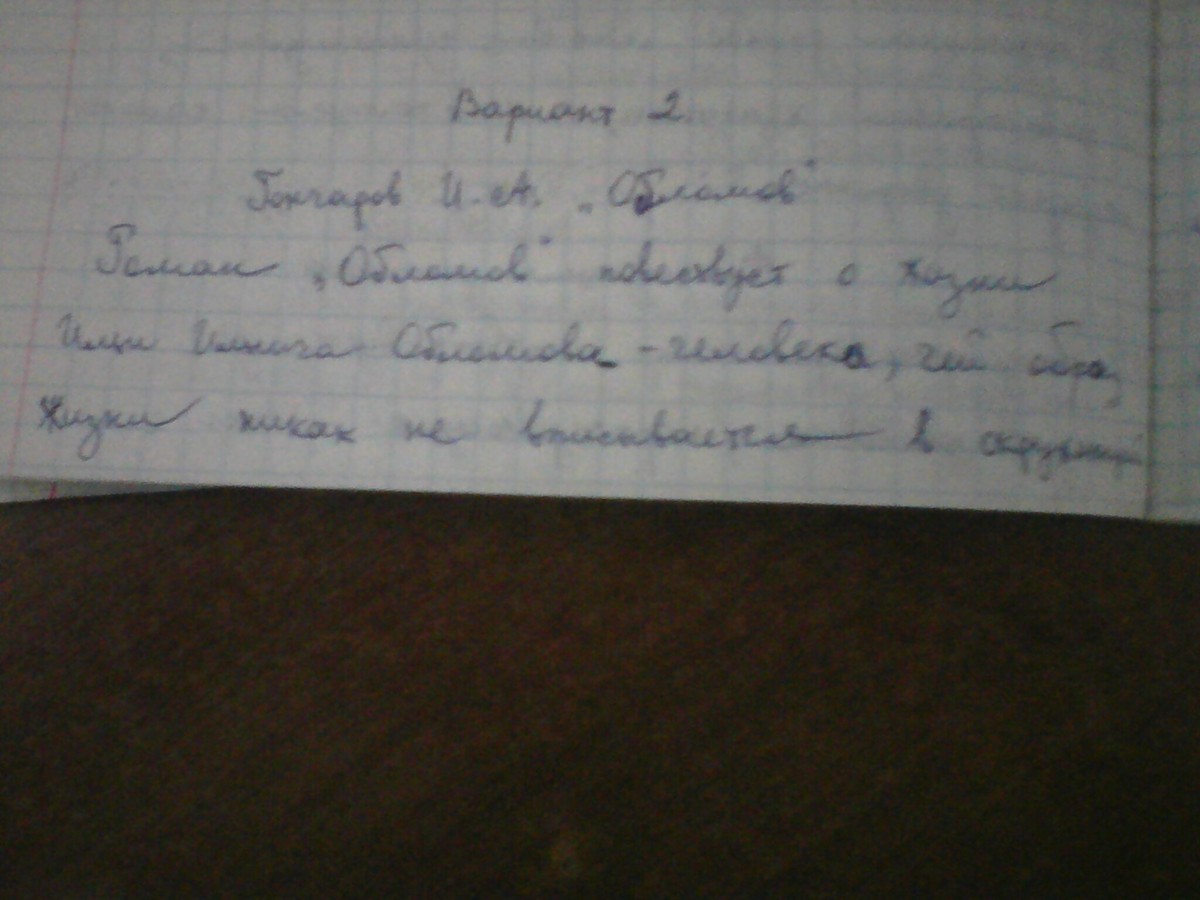 Вариант 2.
Гончаров И.А. „Обломов"
Роман „Обломов" повествует о жизни
Ильи Ильича Обломова - человека, чей образ
жизни никак не вписывается в